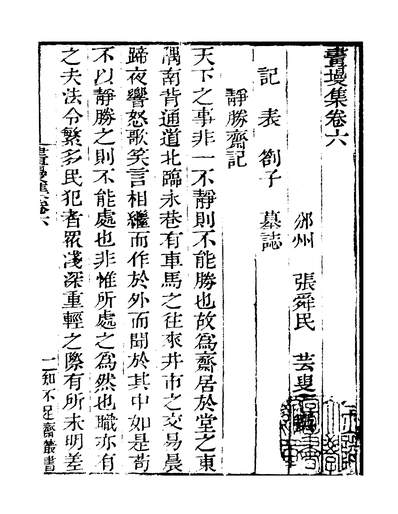 畫墁集卷六
邠州 張舜民 芸叟
記 表 劄子 墓誌
靜勝齋記
天下之事非一不靜則不能勝也故爲齋居於堂之東
偶南背通道北臨永巷有車馬之往來井市之交易晨
蹄夜響怒歌笑言相繼而作於外而聞於其中如是苟
不以靜勝之則不能處也非惟所處之爲然也職亦有
之夫法令繁多民犯者眾淺深重輕之際有所未明差
畫墁集卷六
一知不足齋叢書